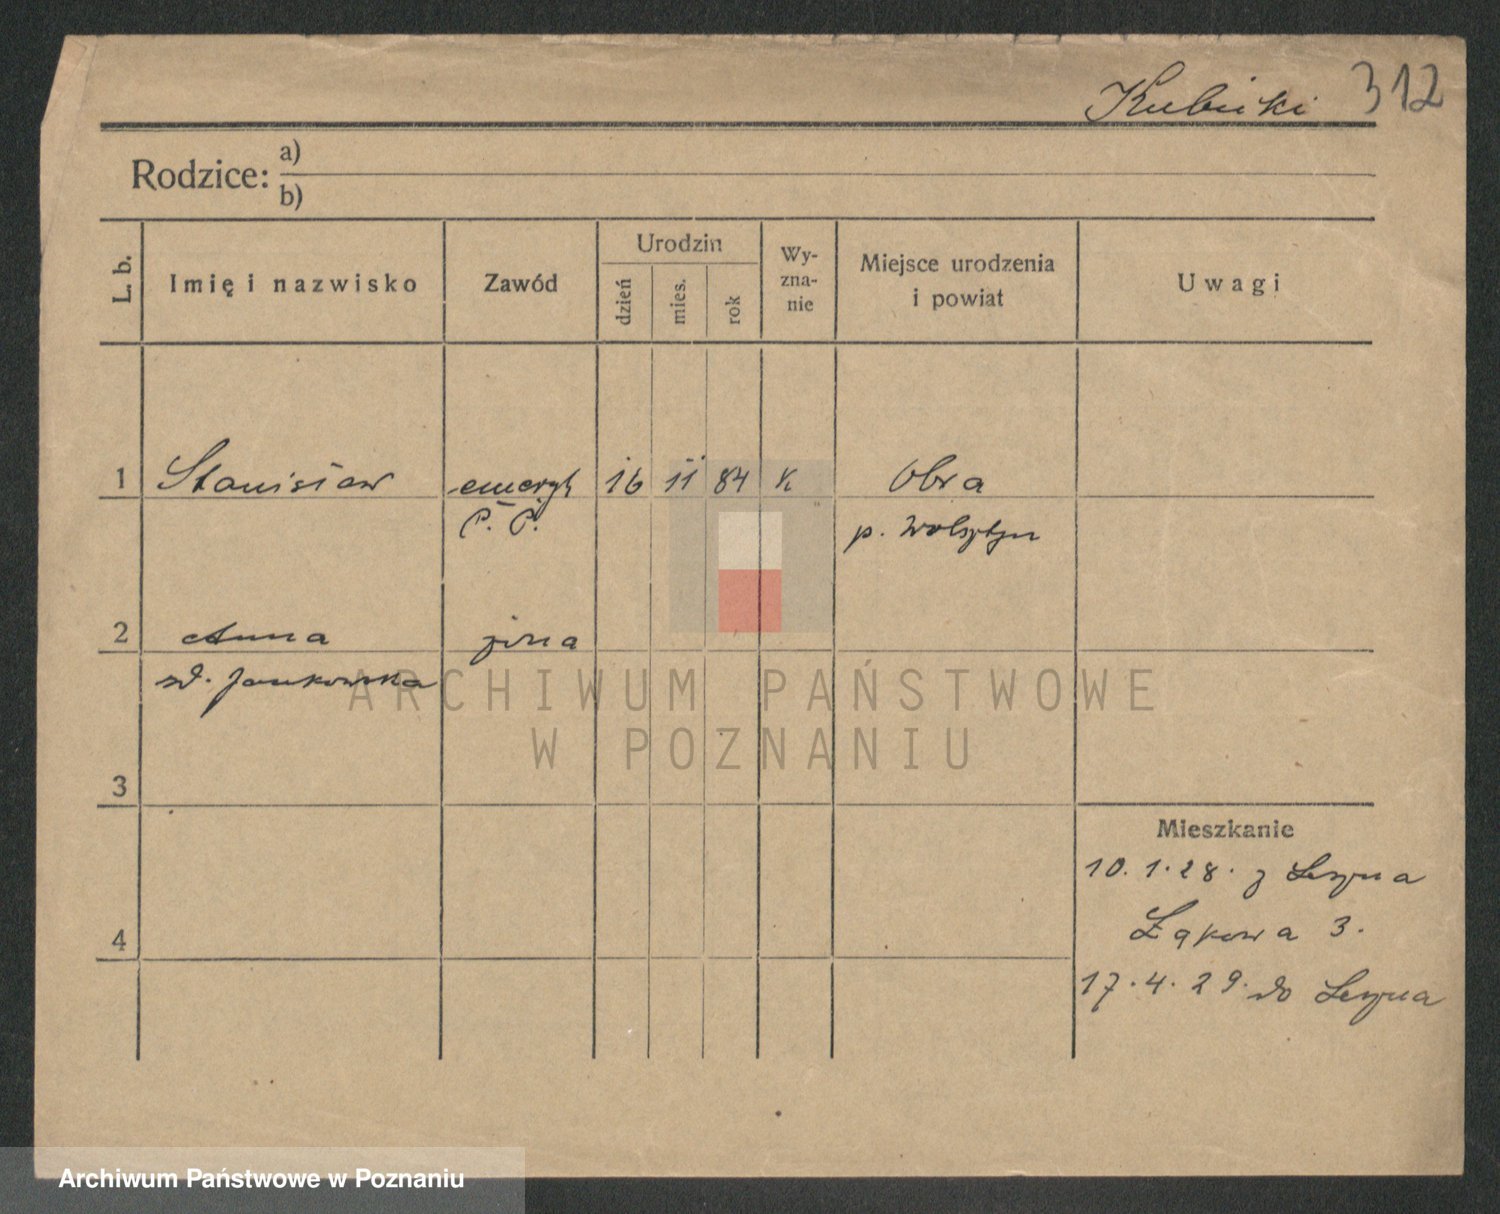 Kubicki 312
Rodzice: a)
b)
L. b.
Imię i nazwisko
Zawód
Urodzin
dzień
mies.
rok
Wy-
zna-
nie
Miejsce urodzenia
i powiat
Uwagi
1 Stanisław emeryt 16 11 84 K Obra
P. P. p. Wolsztyn
2 Anna żona
zd. Jankowska
3
4
Mieszkanie
10. 1. 28. z Leszna
Łąkowa 3.
17. 4. 29. do Leszna
ARCHIWUM PAŃSTWOWE
W POZNANIU
Archiwum Państwowe w Poznaniu